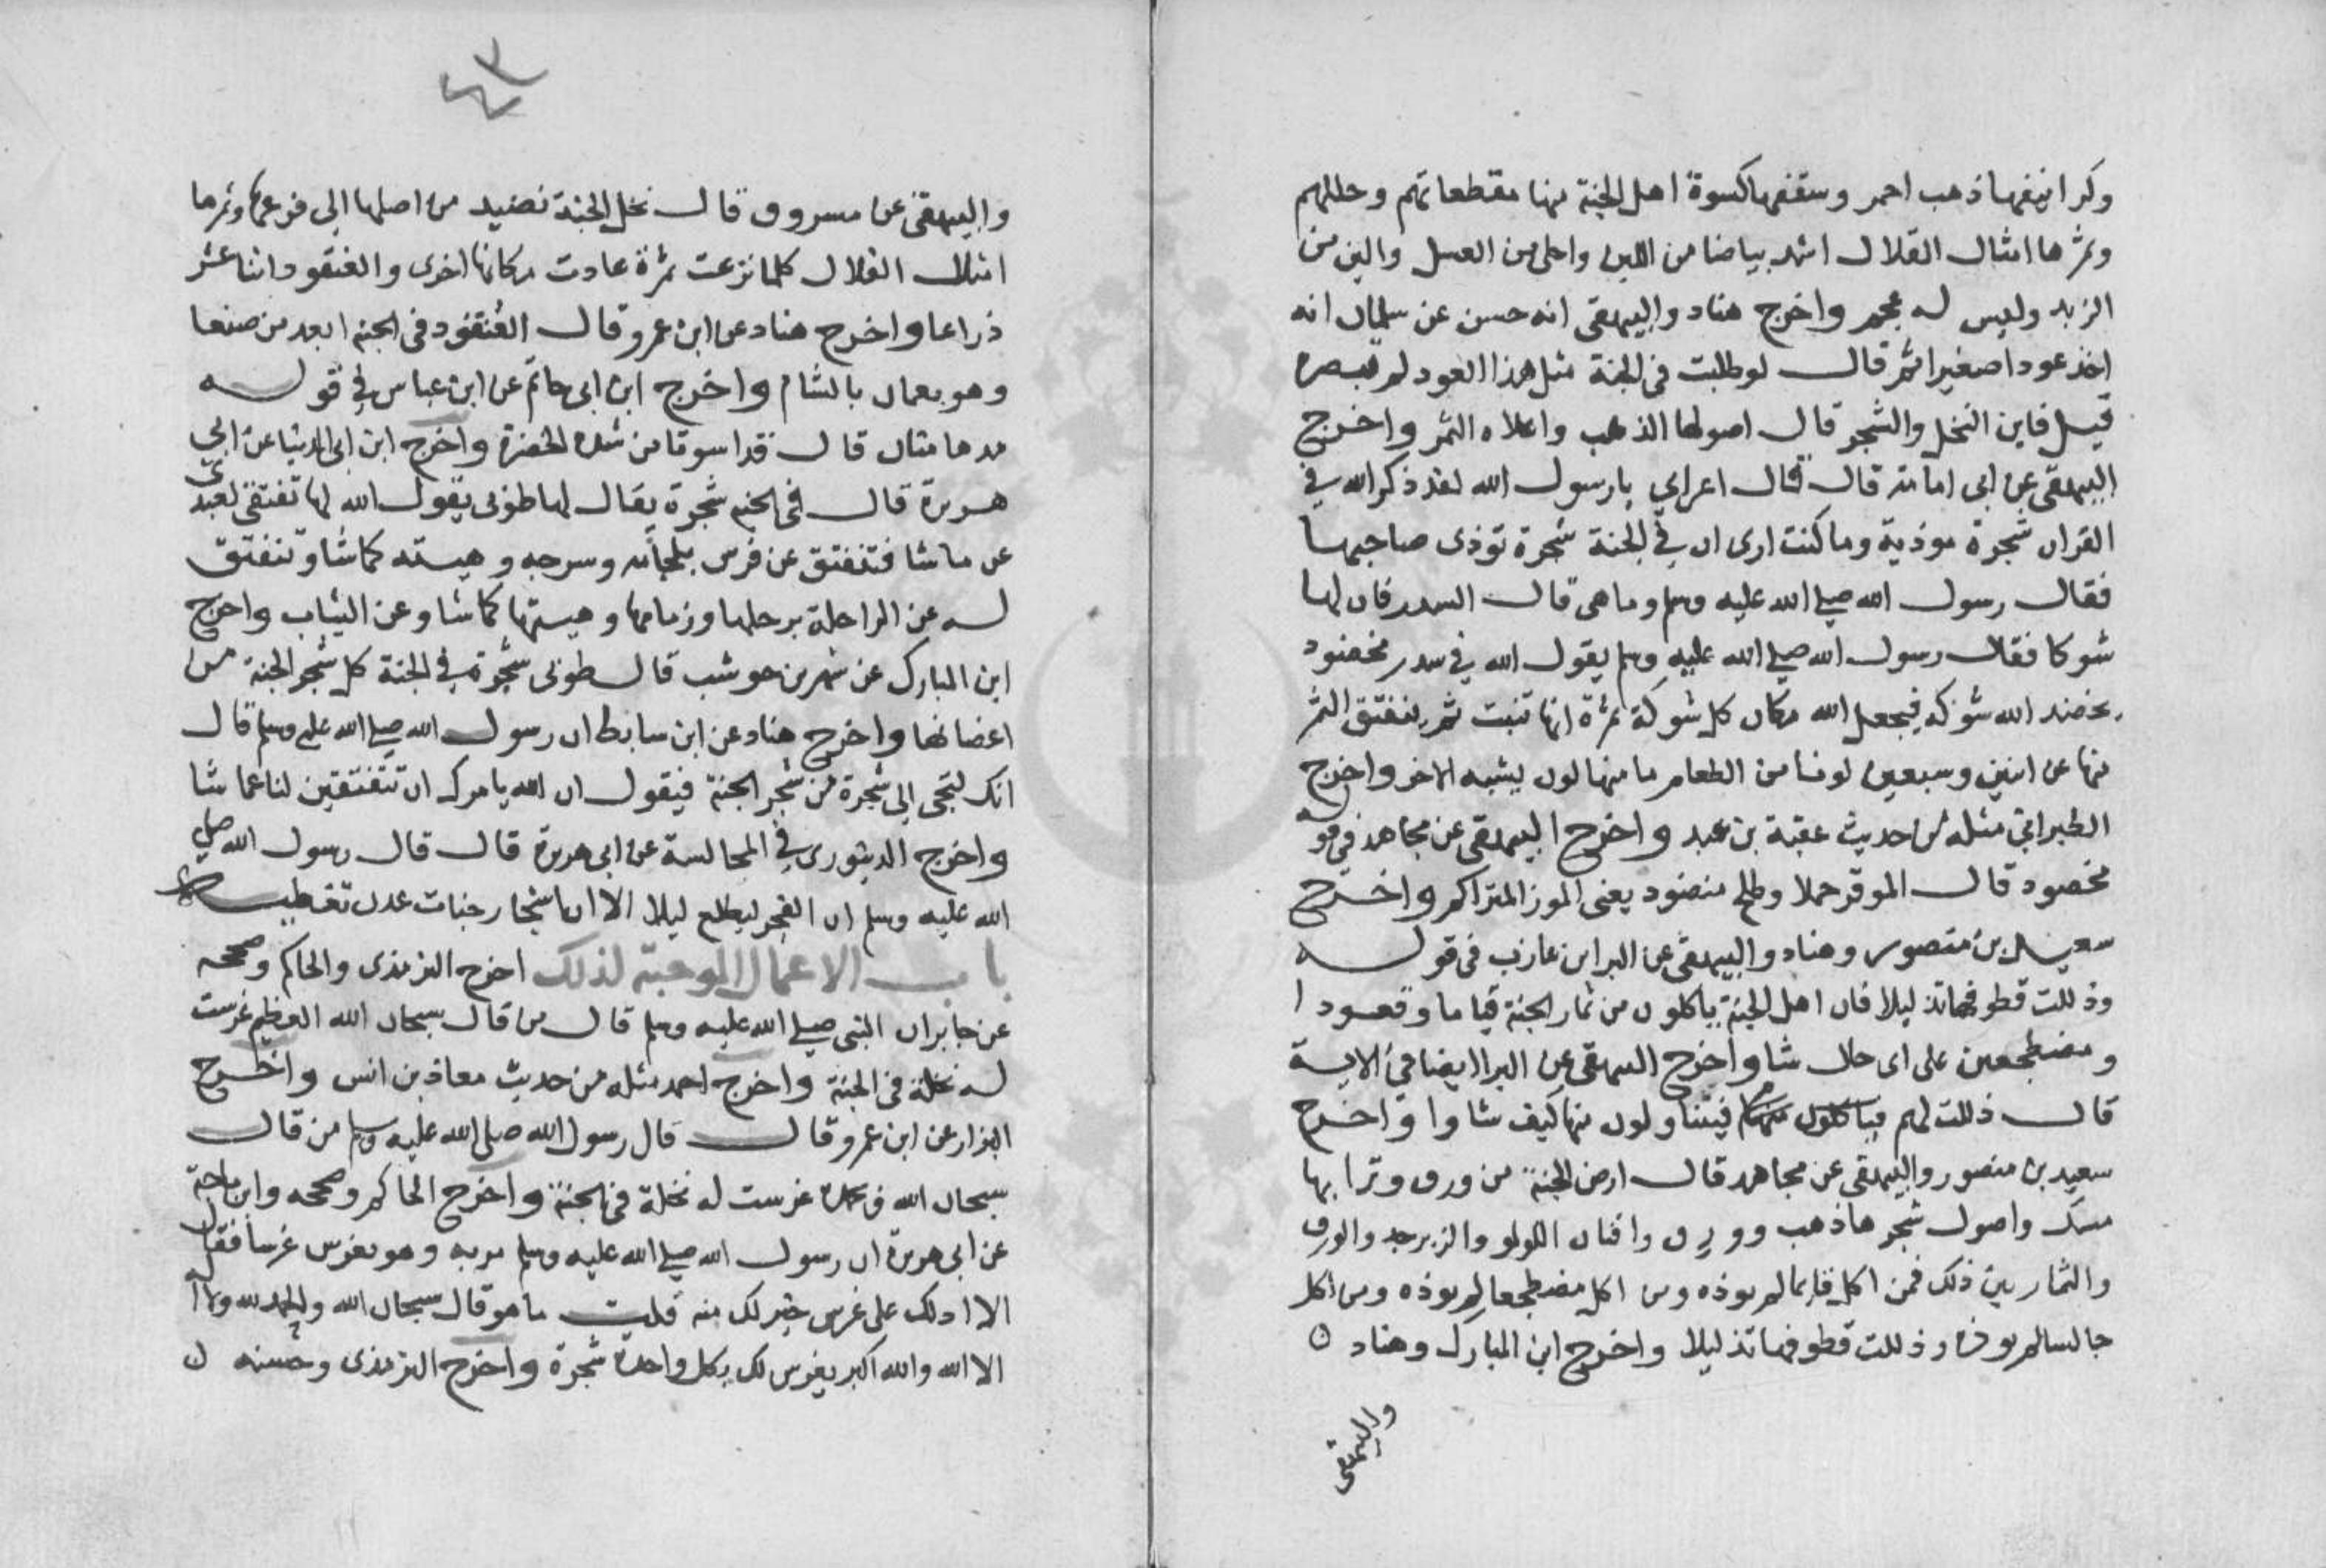 وكرانيفها ذهب احمر وسقفها كسوة اهل الجنة منها مقطعاتهم وحللهم
وثمرها امثال القلال اشد بياضا من اللبن واحلى من العسل والين من
الزبد وليس له عجم واخرج هناد والبيهقى انه حسن عن سلمان انه
اخذ عودا صغيرا ثم قال لو طلبت فى الجنة مثل هذا العود لم تبصره
قيل فاين النخل والشجر قال اصولها الذهب واعلاه الثمر واخرج
البيهقى عن ابى امامة قال قال اعرابي يا رسول الله لقد ذكر الله في
القران شجرة موذية وما كنت ارى ان في الجنة شجرة توذى صاحبها
فقال رسول الله صلي الله عليه وسلم وما هى قال السدر فان لها
شوكا فقال رسول الله صلي الله عليه وسلم يقول الله في سدر مخضود
يخضد الله شوكه فيجعل الله مكان كل شوكة ثمرة انها تنبت ثمر ينفتق الثمر
منها عن اثنين وسبعين لونا من الطعام ما منها لون يشبه الاخر واخرج
الطبرانى مثله من حديث عقبة بن عبد واخرج البيهقى عن مجاهد في قوله
مخضود قال الموقر حملا وطلح منضود يعنى الموز المتراكم واخرج
سعيد بن منصور وهناد والبيهقى عن البرا بن عازب فى قوله
وذللت قطوفها تذليلا قال اهل الجنة ياكلون من ثمار الجنة قياما وقعودا
ومضطجعين على اى حال شاوا واخرج البيهقى عن البرا ايضا فى الاية
قال ذللت لهم فيتناولون منها كيف شاوا واخرج
سعيد بن منصور والبيهقى عن مجاهد قال ارض الجنة من ورق وترابها
مسك واصول شجرها ذهب وورق وافنان اللولو والزبرجد والورق
والثمار بين ذلك فمن اكل قايما لم يوذه ومن اكل مضطجعا لم يوذه ومن اكل
جالسا لم يوذه وذللت قطوفها تذليلا واخرج ابن المبارك وهناد ه
والبيهقى
٤٣
والبيهقى عن مسروق قال نخل الجنة نضيد من اصلها الى فرعها وثمرها
امثال القلال كلما نزعت ثمرة عادت مكانها اخرى والعنقود اثنا عشر
ذراعا واخرج هناد عن ابن عمرو قال العنقود فى الجنة ابعد من صنعا
وهو بعمان بالشام واخرج ابن ابى حاتم عن ابن عباس في قوله
مدهامتان قال قد اسودتا من شدة الخضرة واخرج ابن ابى الدنيا عن ابى
هريرة قال فى الجنة شجرة يقال لها طوبى يقول الله لها تفتقى لعبدى
عن ما شا فتنفتق عن فرس بلجامه وسرجه وهيئته كما شا وتنفتق
له عن الراحلة برحلها وزمامها وهيئتها كما شا وعن الثياب واخرج
ابن المبارك عن شهر بن حوشب قال طوبى شجرة في الجنة كل شجر الجنة من
اغصانها واخرج هناد عن ابن سابط ان رسول الله صلي الله عليه وسلم قال
انك لتجى الى شجرة من شجر الجنة فيقول ان الله يامرك ان تتفتقين لنا عما شا
واخرج الدينورى في المجالسة عن ابى هريرة قال قال رسول الله صلي
الله عليه وسلم ان الفجر ليطلع ليلا الا ان اشجار جنات عدن تغطيه
باب الاعمال الموجبة لذلك اخرج الترمذى والحاكم وصححه
عن جابر ان النبى صلي الله عليه وسلم قال من قال سبحان الله العظيم غرست
له نخلة فى الجنة واخرج احمد مثله من حديث معاذ بن انس واخرج
البزار عن ابن عمرو قال قال رسول الله صلى الله عليه وسلم من قال
سبحان الله وبحمده غرست له نخلة فى الجنة واخرج الحاكم وصححه وابن ماجة
عن ابى هريرة ان رسول الله صلي الله عليه وسلم مر به وهو يغرس غرسا فقال
الا ادلك على غرس خير لك منه قلت ما هو قال سبحان الله والحمد لله ولا اله
الا الله والله اكبر يغرس لك بكل واحدة شجرة واخرج الترمذى وحسنه